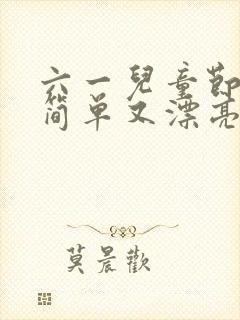 六一兒童節
简单又漂亮
莫晨歡